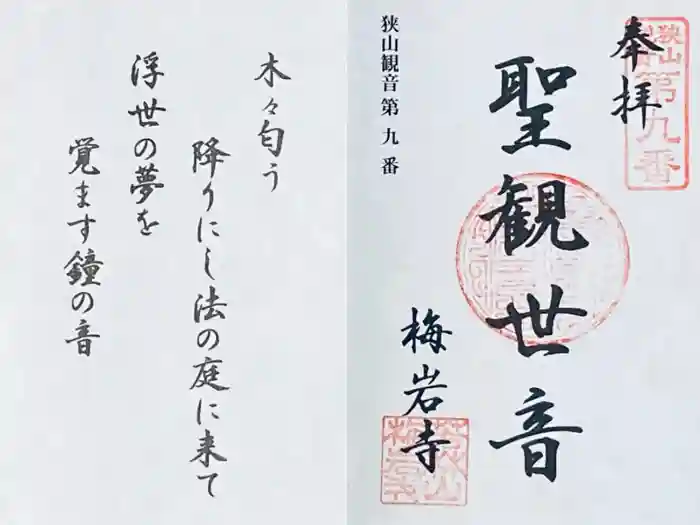 木々匂う
降りにし法の庭に来て
浮世の夢を
覚ます鐘の音
狭山
第九番
奉拝
聖観世音
狭山観音第九番
梅岩寺